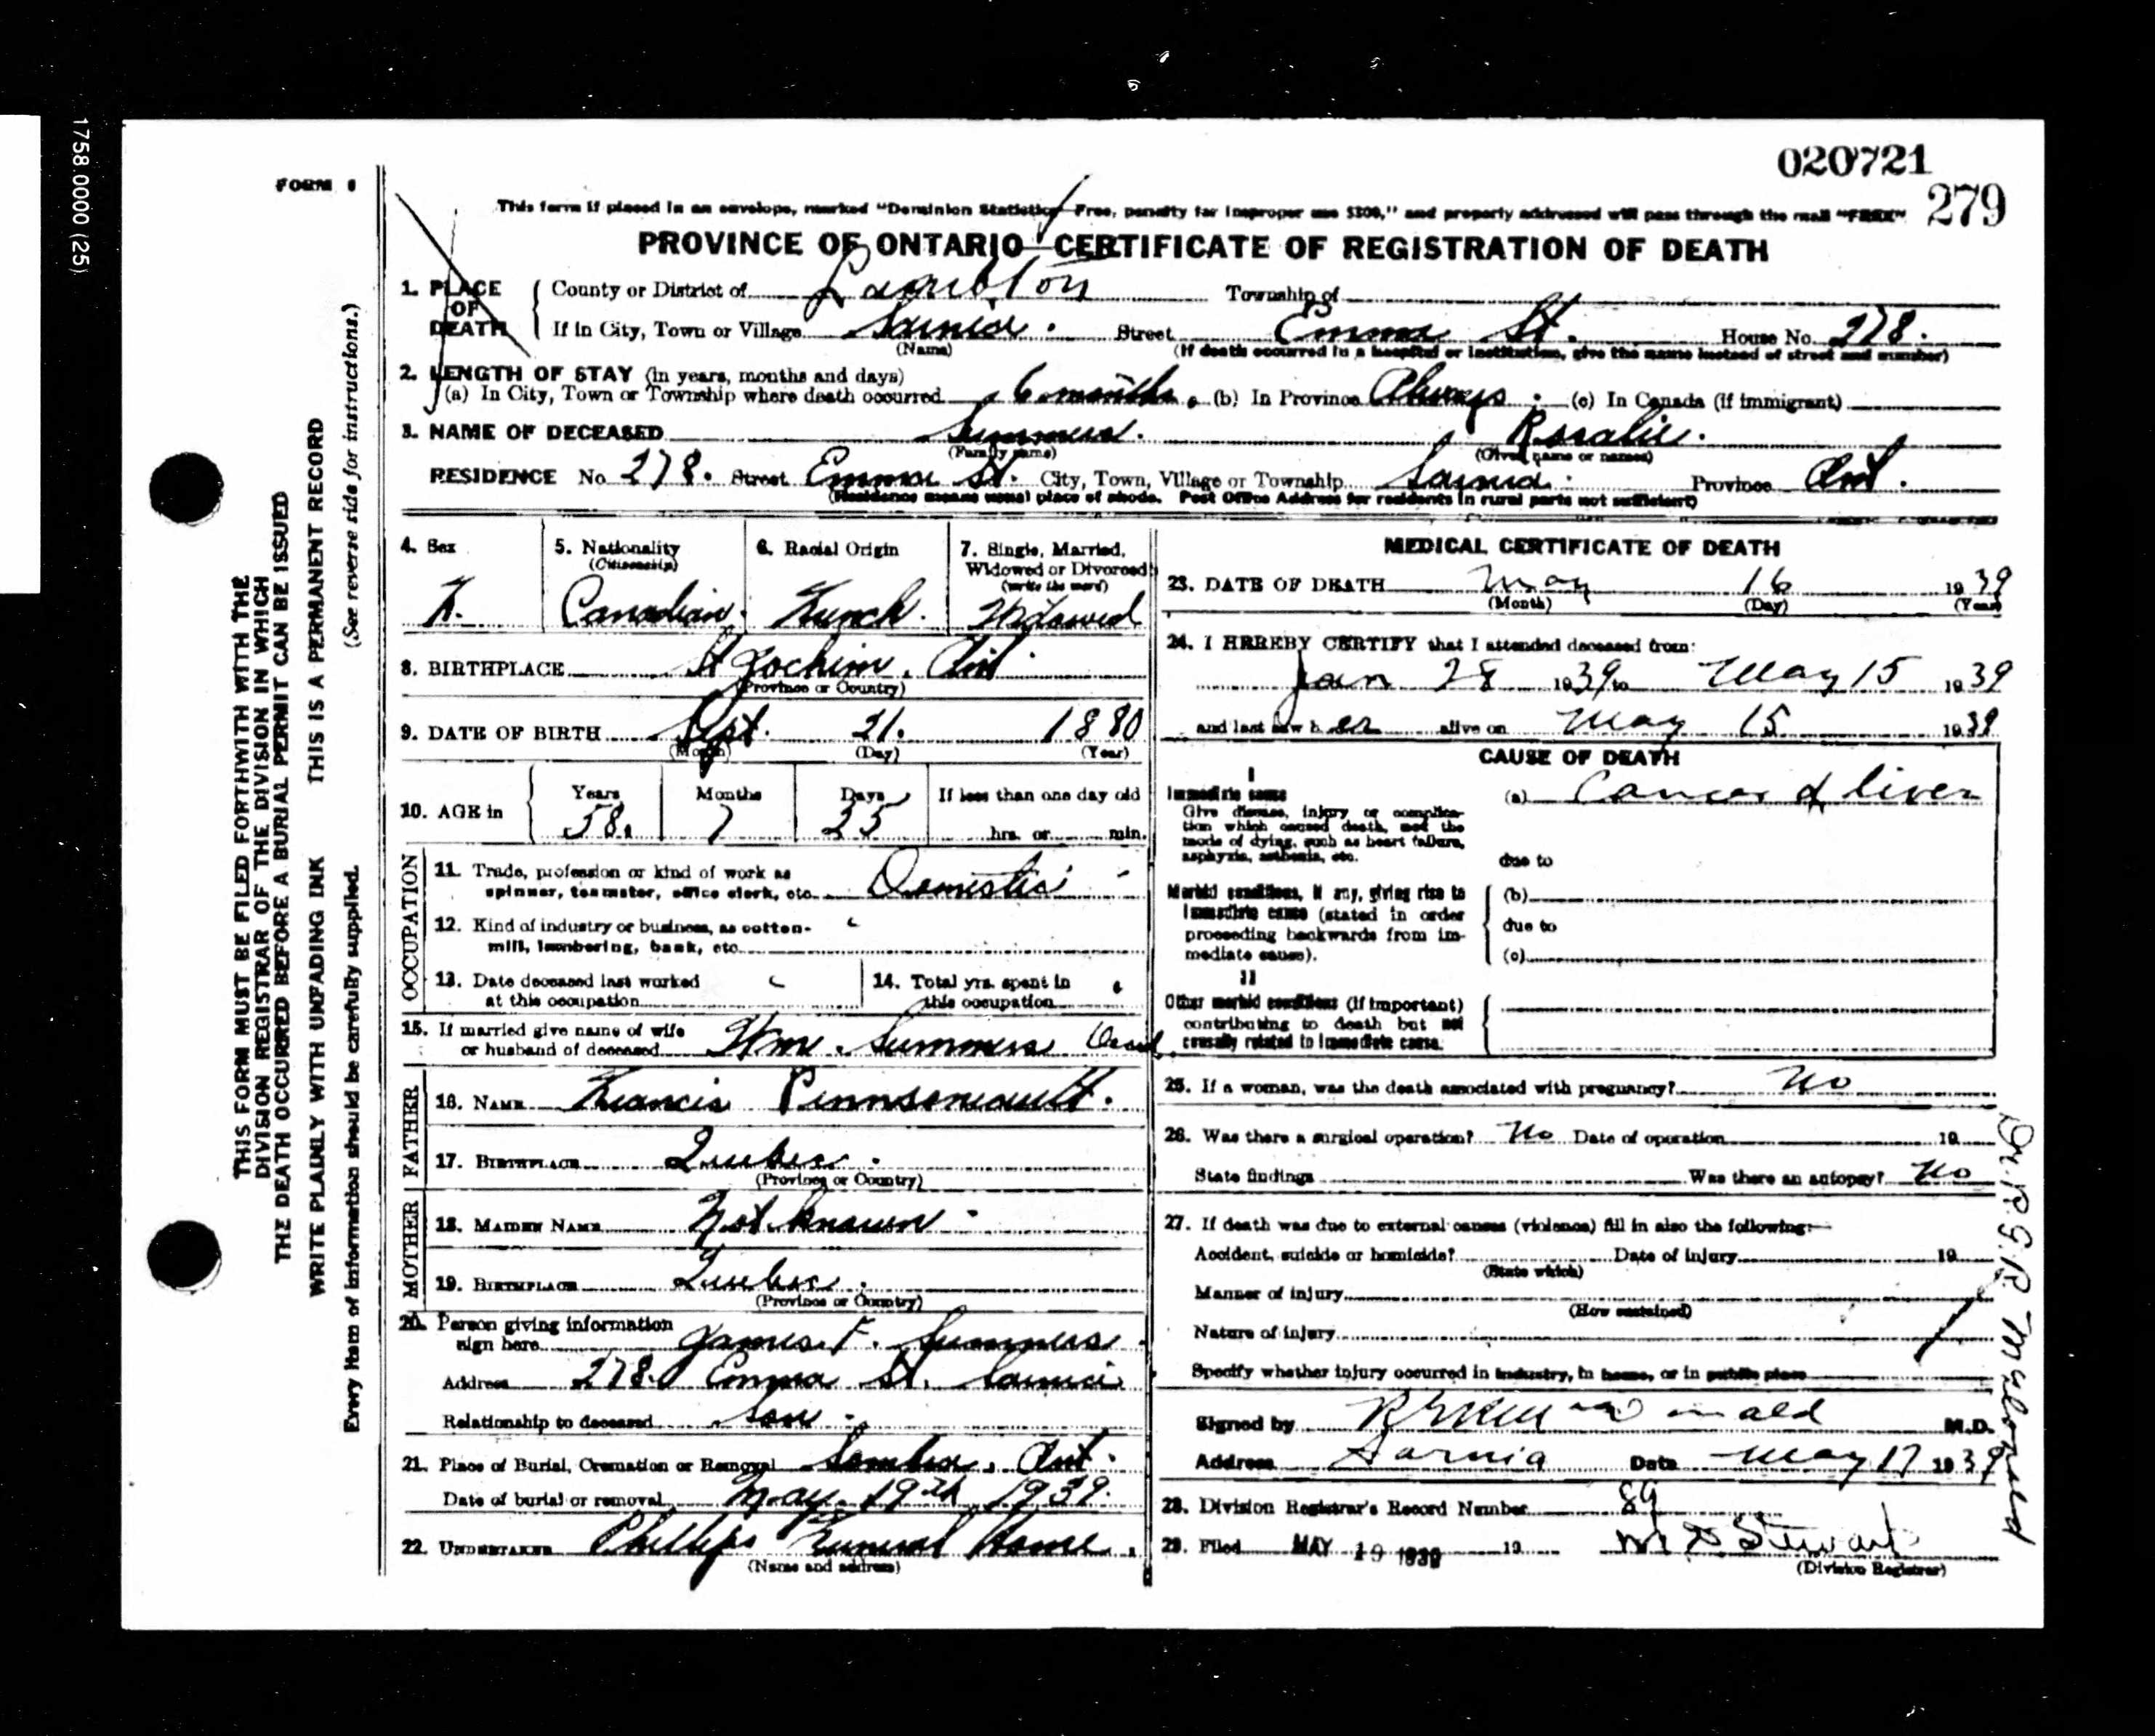 020721
279
1758.0000 (25)
FORM 8
This form if placed in an envelope, marked "Dominion Statistics Free, penalty for improper use $300," and properly addressed will pass through the mail "FREE"
PROVINCE OF ONTARIO—CERTIFICATE OF REGISTRATION OF DEATH
1. PLACE OF DEATH { County or District of Lambton Township of
If in City, Town or Village Sarnia. Street Emma St. House No. 278.
(Name) (If death occurred in a hospital or institution, give the name instead of street and number)
2. LENGTH OF STAY (in years, months and days)
(a) In City, Town or Township where death occurred 6 months. (b) In Province Always. (c) In Canada (if immigrant)
3. NAME OF DECEASED Summers. Rosalie.
(Family name) (Given name or names)
RESIDENCE No. 278. Street Emma St. City, Town, Village or Township Sarnia. Province Ont.
(Residence means usual place of abode. Post Office Address for residents in rural parts not sufficient)
4. Sex F.
5. Nationality (Citizenship) Canadian.
6. Racial Origin French.
7. Single, Married, Widowed or Divorced (write the word) Widowed
8. BIRTHPLACE St Jochim. Ont.
(Province or Country)
9. DATE OF BIRTH Sept. 21. 1880
(Month) (Day) (Year)
10. AGE in { Years 58. Months 7 Days 25 If less than one day old hrs. or min.
OCCUPATION
11. Trade, profession or kind of work as spinner, teamster, office clerk, etc. Domestic
12. Kind of industry or business, as cotton-mill, lumbering, bank, etc.
13. Date deceased last worked at this occupation
14. Total yrs. spent in this occupation
15. If married give name of wife or husband of deceased Wm. Summers Dead
FATHER
16. NAME Francis Pinnsoneault.
17. BIRTHPLACE Quebec.
(Province or Country)
MOTHER
18. MAIDEN NAME Not known
19. BIRTHPLACE Quebec.
(Province or Country)
20. Person giving information sign here James F. Summers.
Address 278. Emma St. Sarnia
Relationship to deceased Son
21. Place of Burial, Cremation or Removal Sombra, Ont.
Date of burial or removal May. 19th 1939.
22. UNDERTAKER Phillips Funeral Home.
(Name and address)
MEDICAL CERTIFICATE OF DEATH
23. DATE OF DEATH May 16 1939
(Month) (Day) (Year)
24. I HEREBY CERTIFY that I attended deceased from:
Jan 28 1939 to May 15 1939
and last saw her alive on May 15 1939
CAUSE OF DEATH
I
Immediate cause
Give disease, injury or complication which caused death, not the mode of dying, such as heart failure, asphyxia, asthenia, etc.
(a) Cancer of liver
due to
Morbid conditions, if any, giving rise to immediate cause (stated in order proceeding backwards from immediate cause).
(b)
due to
(c)
II
Other morbid conditions (if important) contributing to death but not causally related to immediate cause.
25. If a woman, was the death associated with pregnancy? No
26. Was there a surgical operation? No Date of operation 19
State findings Was there an autopsy? No
27. If death was due to external causes (violence) fill in also the following:—
Accident, suicide or homicide? Date of injury 19
(State which)
Manner of injury
(How sustained)
Nature of injury
Specify whether injury occurred in industry, in home, or in public place
Signed by M.D.
Address Sarnia Date May 17 1939
28. Division Registrar's Record Number 89
29. Filed MAY 19 1939 19 Stewart
(Division Registrar)
THIS FORM MUST BE FILED FORTHWITH WITH THE
DIVISION REGISTRAR OF THE DIVISION IN WHICH
THE DEATH OCCURRED BEFORE A BURIAL PERMIT CAN BE ISSUED
WRITE PLAINLY WITH UNFADING INK THIS IS A PERMANENT RECORD
Every item of information should be carefully supplied. (See reverse side for instructions.)